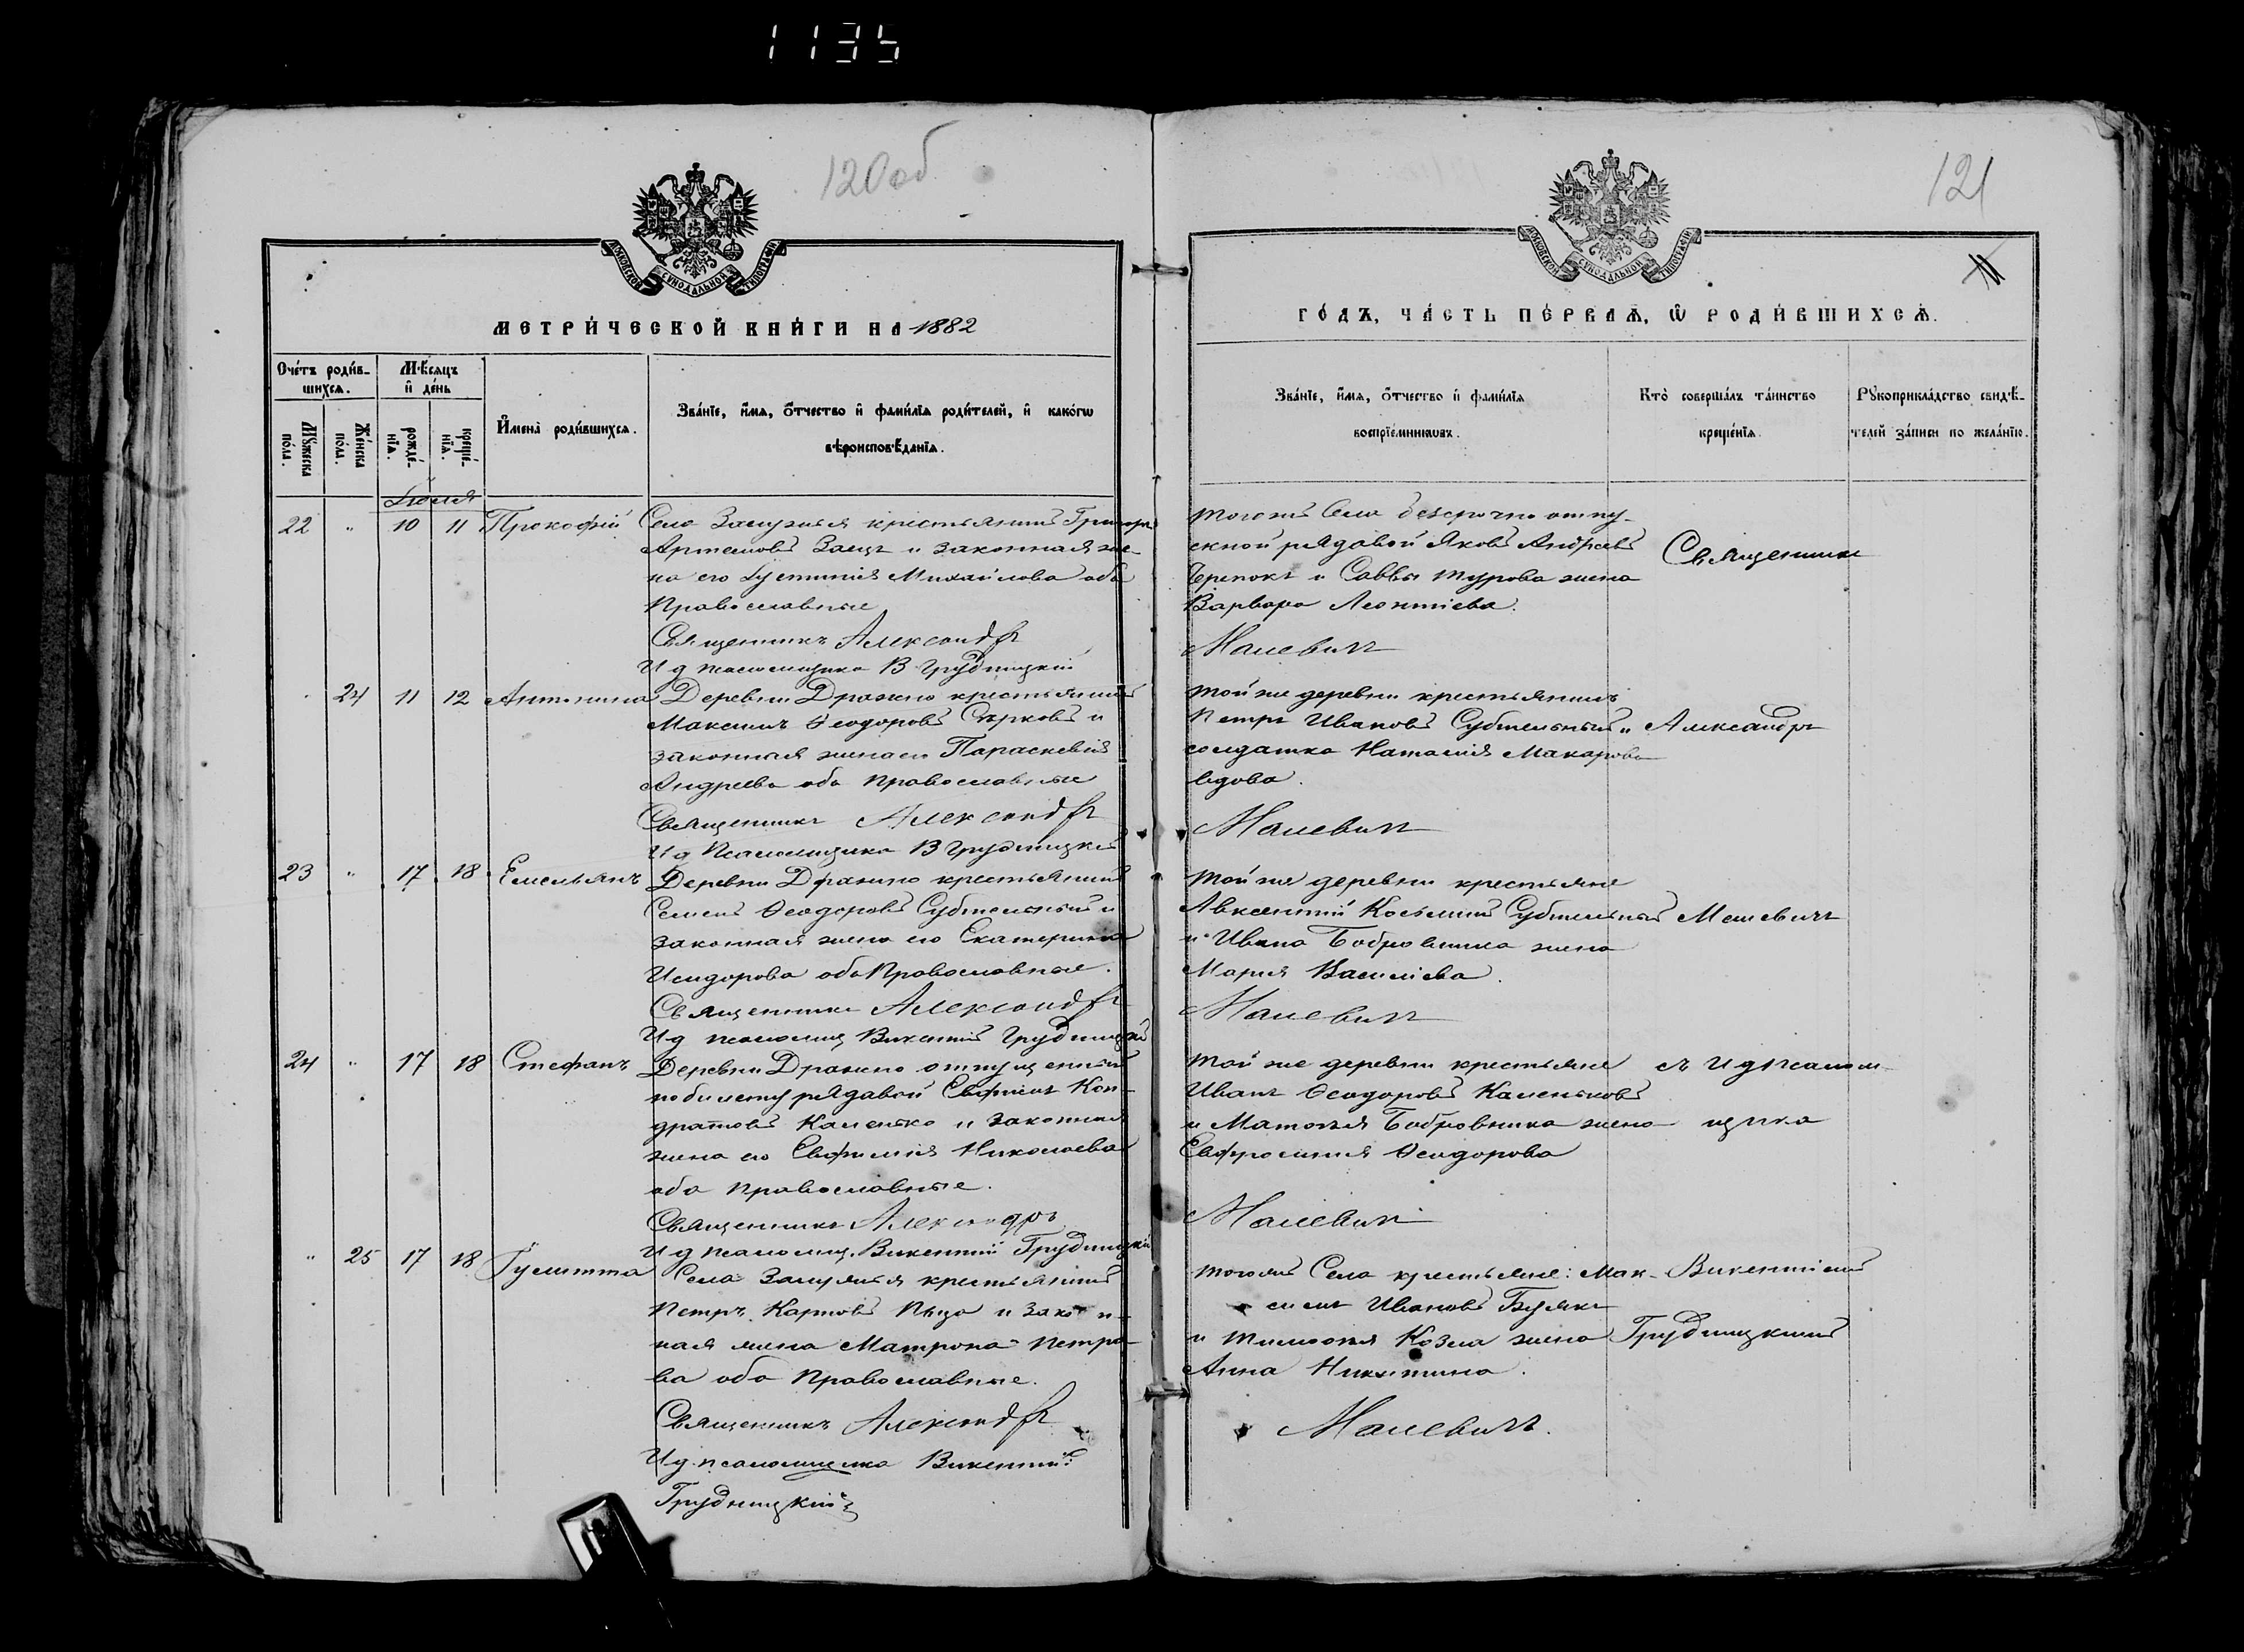 1135
120об
МОСКОВСКОЙ СѴНОДАЛЬНОЙ ТИПОГРАФІИ
МЕТРИ́ЧЕСКОЙ КНИ́ГИ НА 1882
Счéтъ роди́в-
шихсѧ.
Мѣ́сѧцъ
и҆ де́нь
Мꙋ́жеска
по́ла.
Же́нска
по́ла.
рожде́-
нїѧ.
креще́-
нїѧ.
И҆мена̀ роди́вшихсѧ.
Зва́нїе, и҆́мѧ, ѻ҆́тчество и҆ фами́лїѧ роди́телей, и҆ како́гѡ
вѣроисповѣ́данїѧ.
Іюля
22 " 10 11 Прокофій Села Замужья крестьянинъ Григорій
Артемовъ Заецъ и законная же-
на его Іустинія Михайлова оба
Православные
Священникъ Александръ
И д псаломщика В Грудницкій
" 24 11 12 Антонина Деревни Дражно крестьянинъ
Максимъ Ѳеодоровъ и
законная жена его Параскевія
Андреева оба Православные
Священникъ Александръ
И д Псаломщика В Грудницкій
23 " 17 18 Емельянъ Деревни Дражно крестьянинъ
Семенъ Ѳеодоровъ Субтельный и
законная жена его Екатерина
Исидорова оба Православные.
Священникъ Александръ
И д псаломщ Викентій Грудницкій
24 " 17 18 Стефанъ Деревни Дражно отпущенный
по билету рядавой Евфимъ Кон-
дратовъ Каменко и законная
жена его Евфимія Николаева
оба православные.
Священникъ Александръ
И д псаломщ. Викентій Грудницкій
" 25 17 18 Іулитта Села Замужья крестьянинъ
Петръ Карповъ и закон-
ная жена Матрона Петро-
ва оба Православные.
Священникъ Александръ
И д. псаломщика Викентій
Грудницкій
121
МОСКОВСКОЙ СѴНОДАЛЬНОЙ ТИПОГРАФІИ
ГО́ДЪ, ЧА́СТЬ ПЕ́РВАѦ, Ѡ҆ РОДИ́ВШИХСѦ.
Зва́нїе, и҆́мѧ, ѻ҆́тчество и҆ фами́лїѧ
воспрїе́мникѡвъ.
Кто̀ соверша́лъ та́инство
креще́нїѧ.
Рꙋкоприкла́дство свидѣ́-
телей за́писи по жела́нїю.
Тогожъ Села безсрочно отпу-
скной рядавой Яковъ Андреевъ Священникъ
и Саввы Турова жена
Варвара Леонтіева.
Малевичъ
Той же деревни крестьянинъ
Петръ Ивановъ Субтельный и Александръ
солдатка Наталія Макарова
вдова.
Малевичъ
Той же деревни крестьяне
Авксентій Косьминъ Субтельный Малевичъ
и Ивана Бобровника жена
Марія Василіева.
Малевичъ
Той же деревни крестьяне съ И д Псалом-
Иванъ Ѳеодоровъ Каменковъ
и Матѳея Бобровника жена щика
Евфросинія Ѳеодорова
Малевичъ
Тогожъ Села крестьяне: Мак- Викентіемъ
симъ Ивановъ
и Тимоѳея Козла жена Грудницкимъ
Анна Никитина.
Малевичъ.